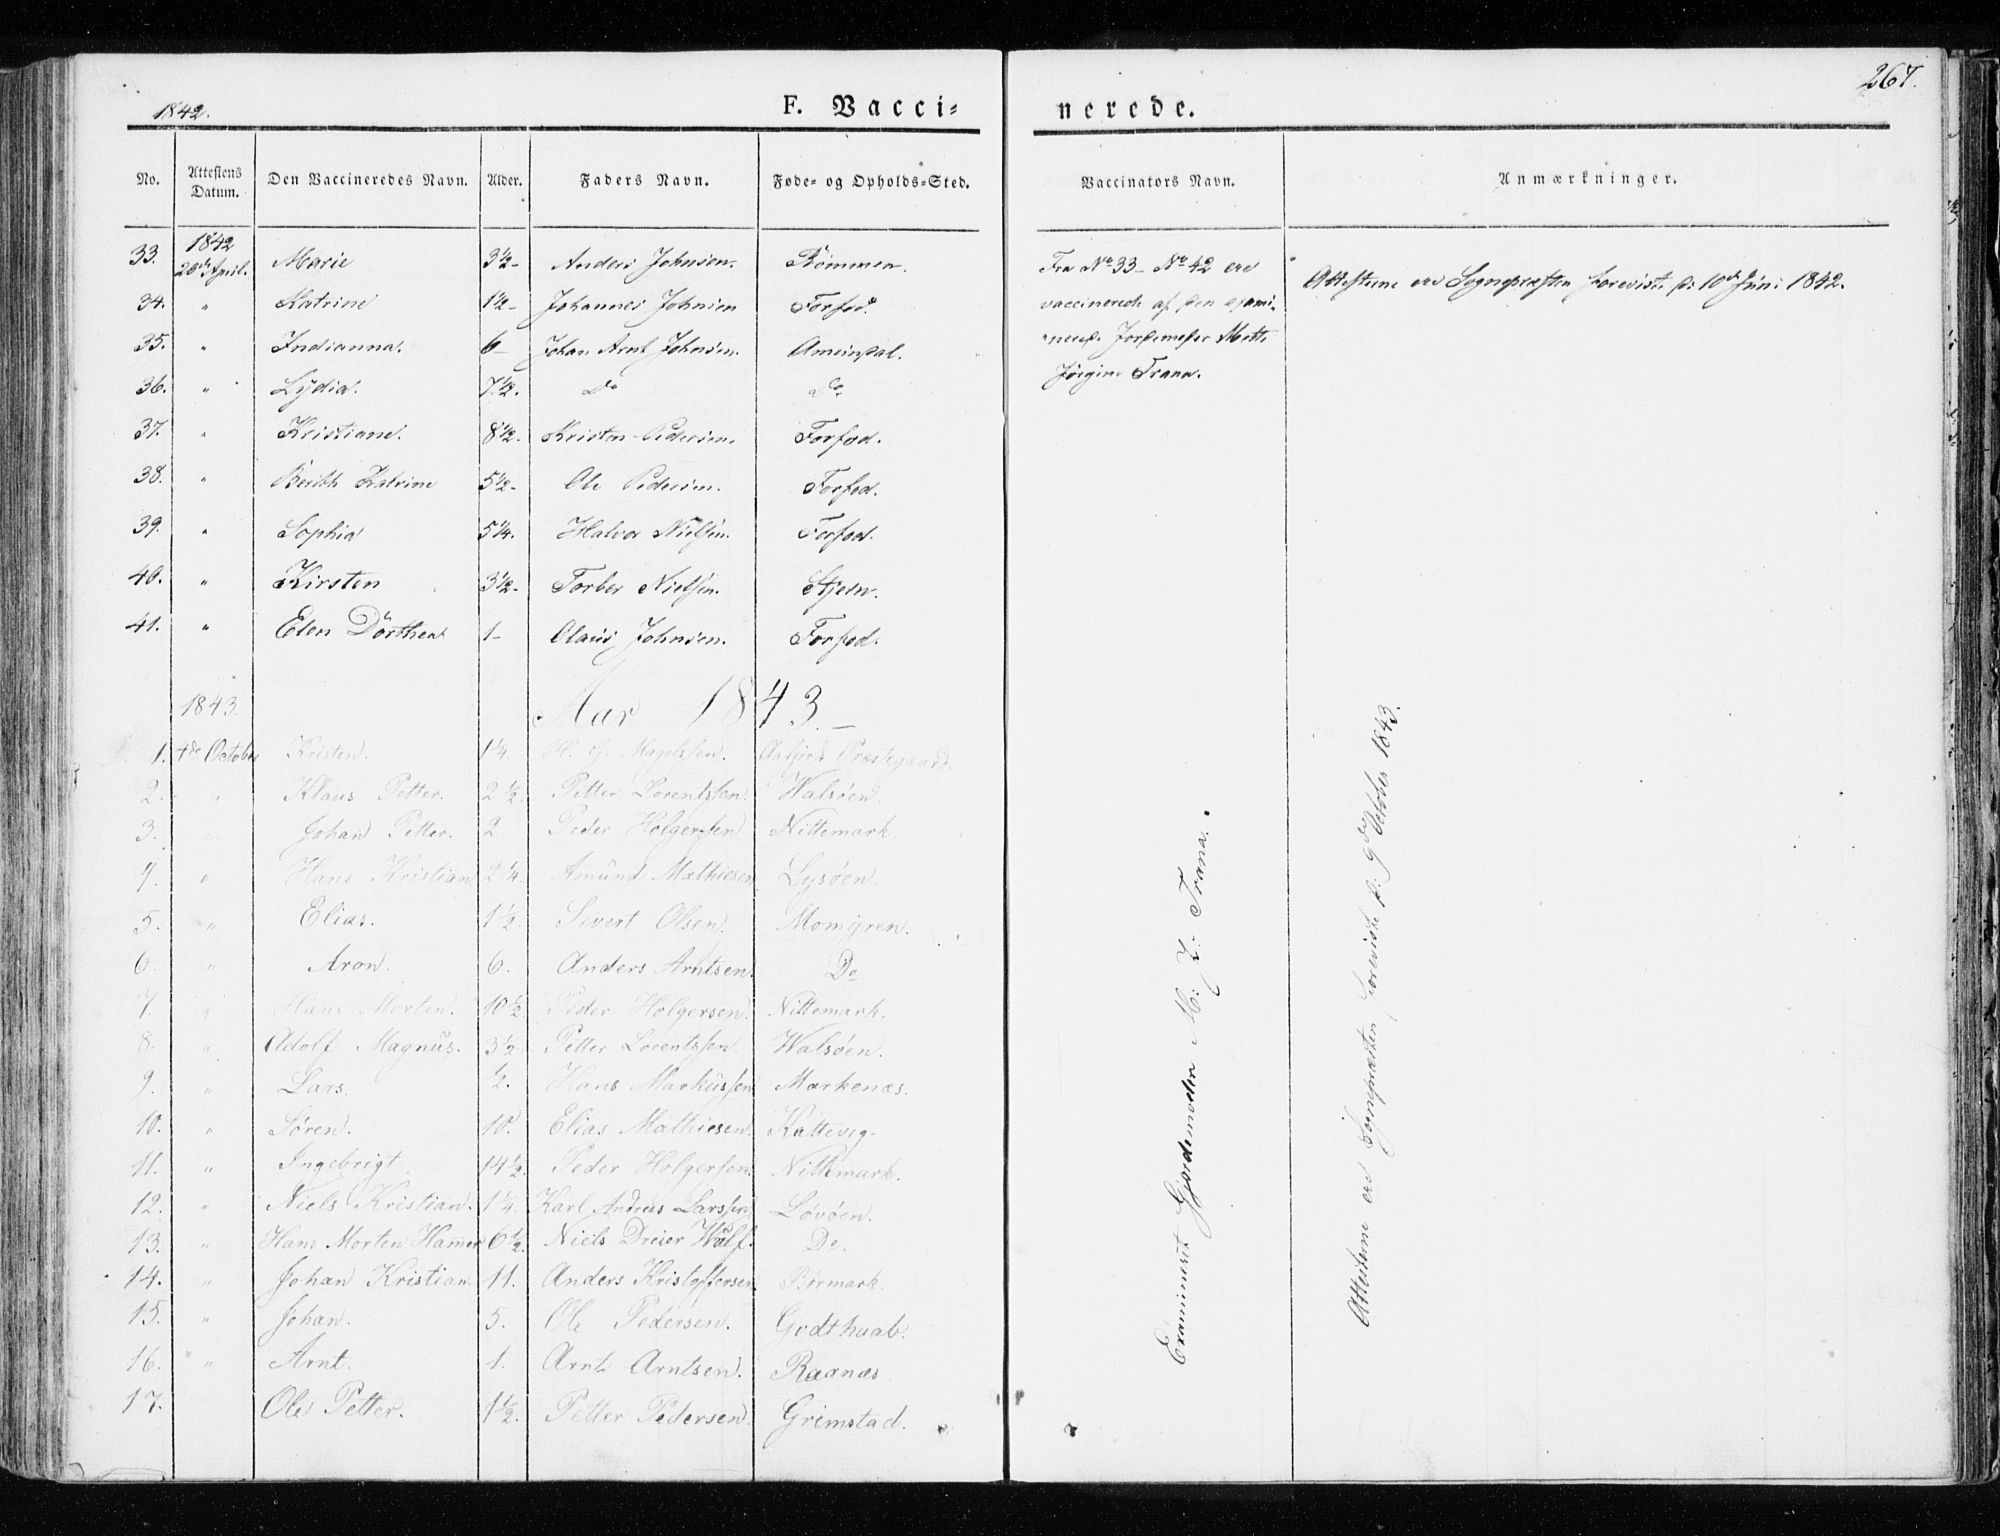 267.
1842.
F. Vacci=
nerede.
No. Attestens Datum. Den Vaccineredes Navn. Alder. Faders Navn. Føde- og Opholds-Sted. Vaccinators Navn. Anmærkninger.
1842
33. 20de April. Marie 3½- Anders Johnsen. Römmen.
34. " Katrine 1½- Johannes Johnsen Forfod.
35. " Indianna. 6- Johan Arnt Johnsen.
36. " Lydia. 7½. Do Do
37. " Kristiane. 8½. Kristen Pedersen. Forfod.
38. " Berith Katrine 5½- Ole Pedersen. Forfod.
39. " Sophia 5¼. Halvor Nielsen. Forfod.
40. " Kirsten 3½- Torber Nielsen. Stjern.
41. " Elen Dörthea 1- Olaus Johnsen. Forfod.
Fra No 33 - No 42 ere
vaccinerede af den exami-
nerede Jordemoder Mette
Jørgine Trana.
Attesterne ere Sognepræsten foreviste d: 10de Juni 1842.
1843. Aar 1843.-
1. 4de October Kristen. 1¼. H. G. Magelssen. Aafjord Præstegaard.
2. " Klaus Petter. 2½. Petter Lorentssen. Walsøen.
3. " Johan Petter. 2. Peder Holgersen Nittemark.
4. " Hans Kristian 2¼. Amund Mathiesen Lysøen.
5. " Elias. 1½ Sivert Olsen. Momyren.
6. " Aron. 6. Anders Arntsen. Do
7. " Hans Morten. 10½ Peder Holgersen. Nittemark.
8. " Adolf Magnus. 3½. Petter Lorentssen. Walsøen.
9. " Lars. ½. Hans Markussen Markenæs.
10. " Søren. 10. Elias Mathiesen. Kattevig.
11. " Ingebrigt 14½. Peder Holgersen. Nittemark.
12. " Niels Kristian. 1¼. Karl Andreas Larssen Løvøen.
13. " Hans Morten Hammer 6½. Niels Dreier Wulf. Do.
14. " Johan Kristian. 11. Anders Kristoffersen Børmark
15. " Johan. 5. Ole Pedersen. Godthaab.
16. " Arnt. 1. Arnt Arntsen. Raanæs
17. Ole Petter. 1½. Petter Pedersen. Grimstad.
Examineret Gjordemoder M: J: Trana.
Attesterne ere Sognepræsten foreviste d: 9de October 1843.